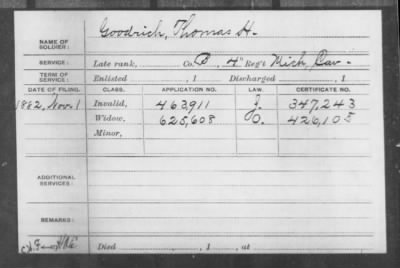 NAME OF SOLDIER: Goodrich, Thomas H.
SERVICE: Late rank, Co. B, 4" Reg't Mich. Cav.
TERM OF SERVICE: Enlisted , 1 Discharged , 1
DATE OF FILING. CLASS. APPLICATION NO. LAW. CERTIFICATE NO.
1882, Nov. 1 Invalid, 463,911 J. 347,243
Widow, 625,608 O. 426,105
Minor,
ADDITIONAL SERVICES:
REMARKS:
Died , 1 , at